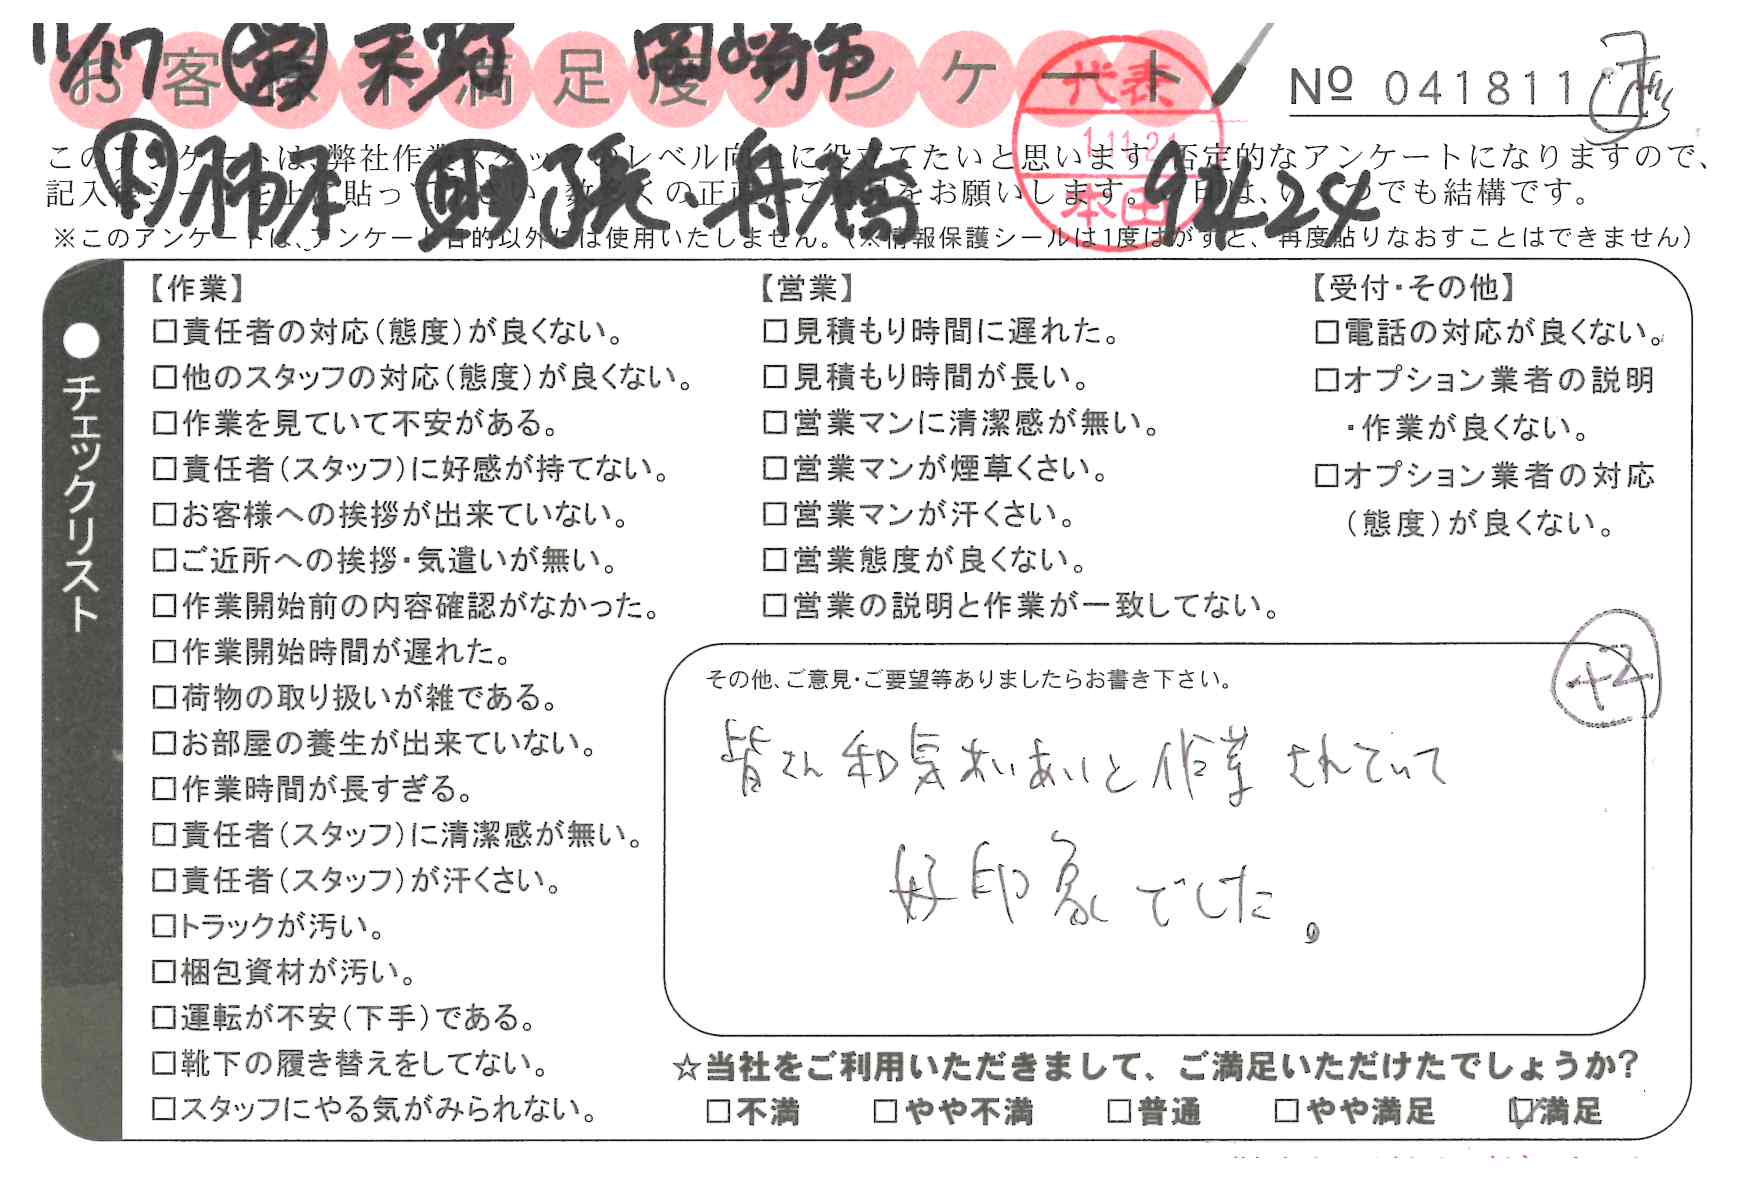 11/17 岡崎市
お客様不満足度アンケート
代表
1.11.21
本田
Nº 041811
このアンケートは、弊社作業スタッフのレベル向上に役立てたいと思います。否定的なアンケートになりますので、
記入後シールを上に貼って下さい。数多くの正直なご意見をお願いします。
舟橋 9424
※このアンケートは、アンケート目的以外には使用いたしません。(※情報保護シールは1度はがすと、再度貼りなおすことはできません)
●チェックリスト
【作業】
□責任者の対応(態度)が良くない。
□他のスタッフの対応(態度)が良くない。
□作業を見ていて不安がある。
□責任者(スタッフ)に好感が持てない。
□お客様への挨拶が出来ていない。
□ご近所への挨拶・気遣いが無い。
□作業開始前の内容確認がなかった。
□作業開始時間が遅れた。
□荷物の取り扱いが雑である。
□お部屋の養生が出来ていない。
□作業時間が長すぎる。
□責任者(スタッフ)に清潔感が無い。
□責任者(スタッフ)が汗くさい。
□トラックが汚い。
□梱包資材が汚い。
□運転が不安(下手)である。
□靴下の履き替えをしてない。
□スタッフにやる気がみられない。
【営業】
□見積もり時間に遅れた。
□見積もり時間が長い。
□営業マンに清潔感が無い。
□営業マンが煙草くさい。
□営業マンが汗くさい。
□営業態度が良くない。
□営業の説明と作業が一致してない。
【受付・その他】
□電話の対応が良くない。
□オプション業者の説明
・作業が良くない。
□オプション業者の対応
(態度)が良くない。
その他、ご意見・ご要望等ありましたらお書き下さい。
+2
皆さん和気あいあいと作業されていて
好印象でした。
☆当社をご利用いただきまして、ご満足いただけたでしょうか?
□不満 □やや不満 □普通 □やや満足 ☑満足